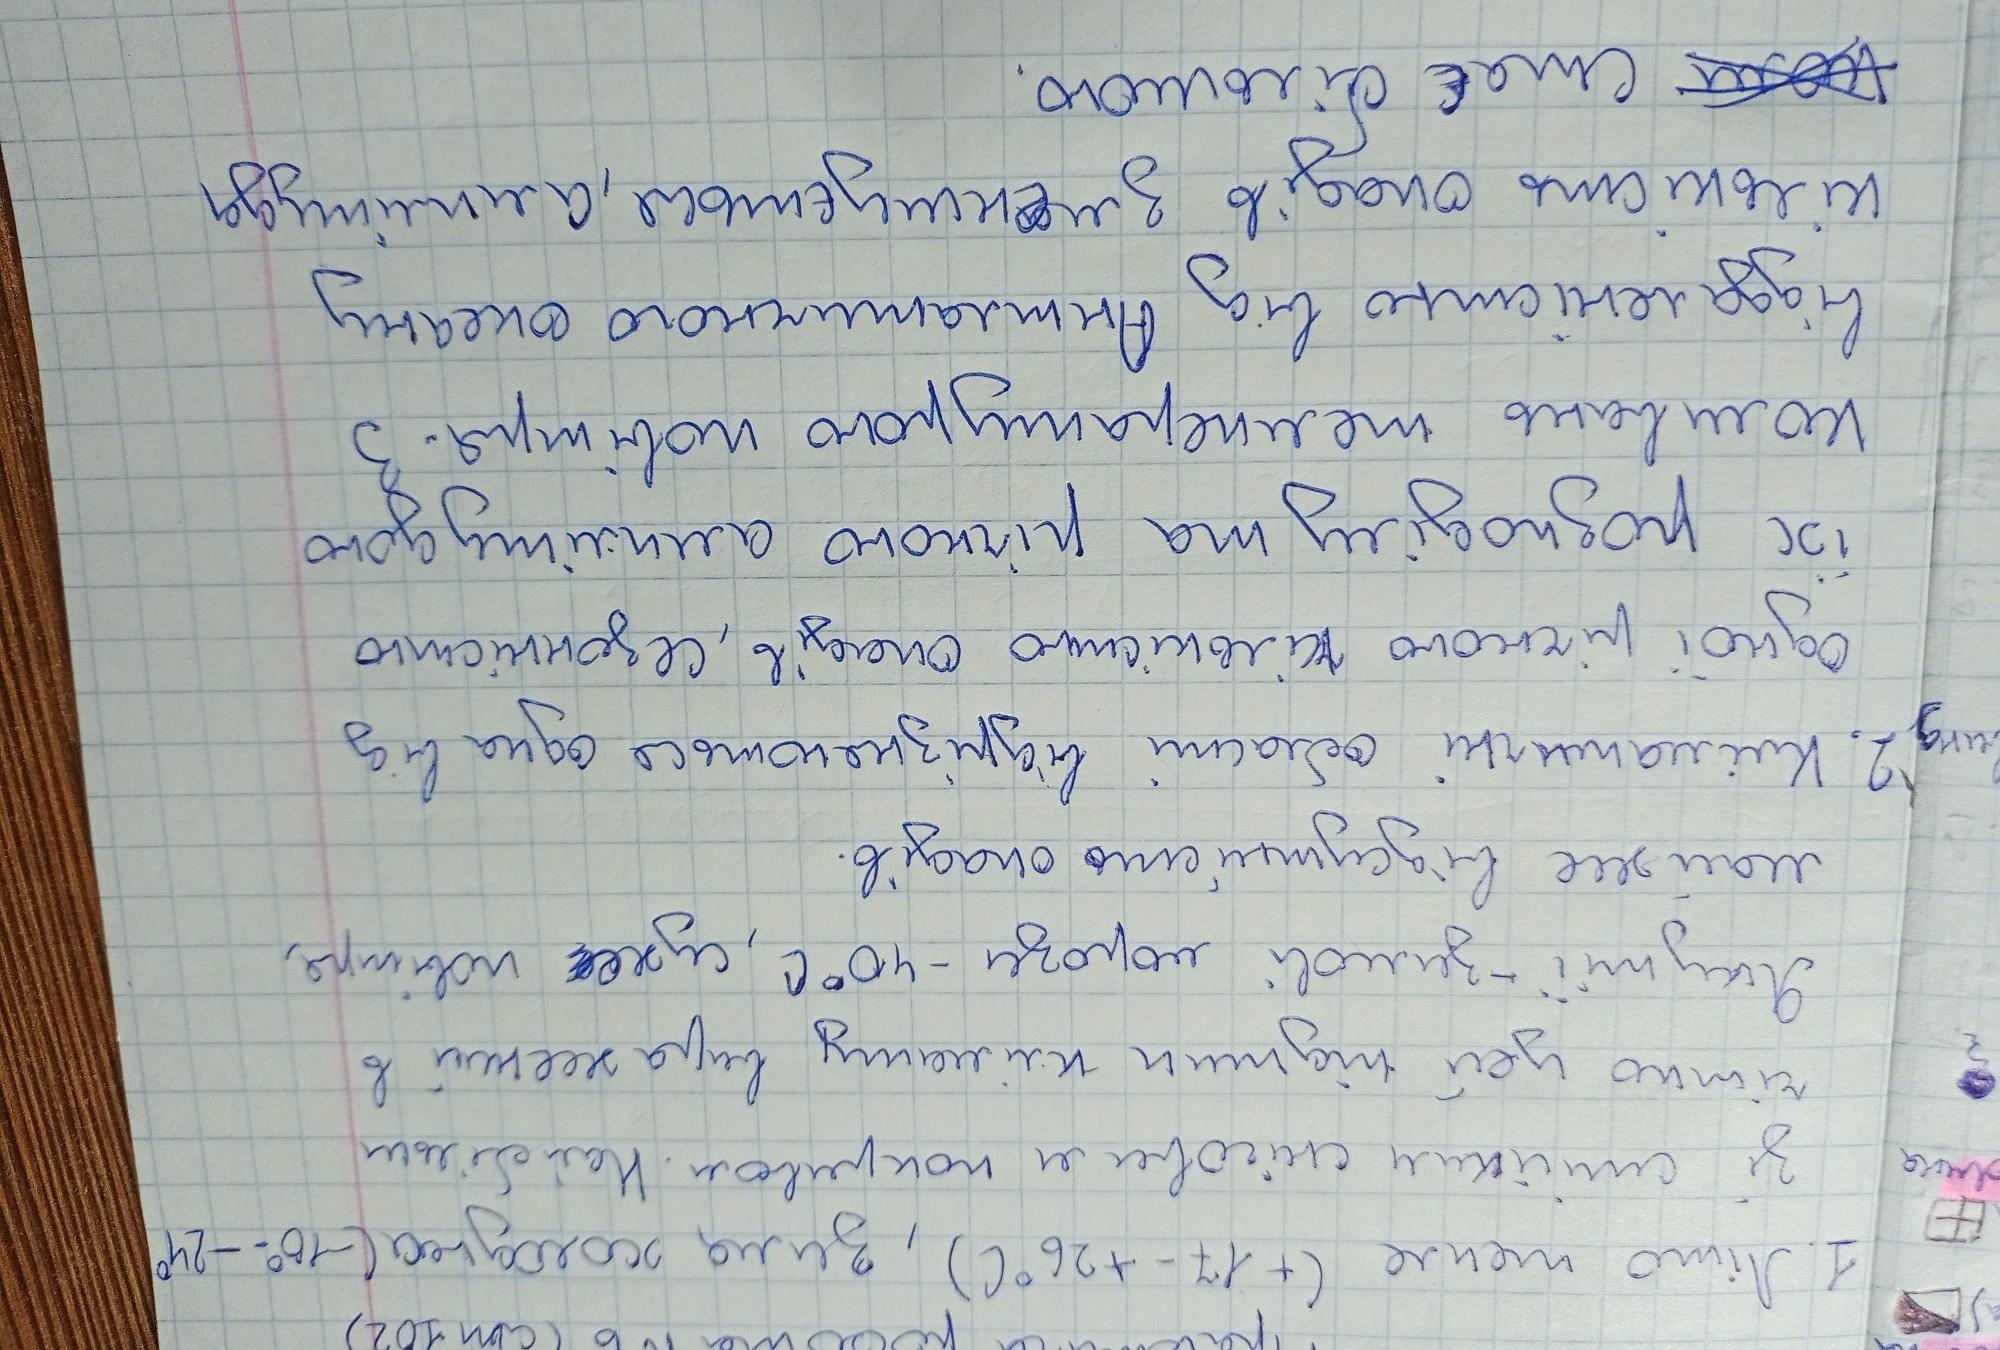 Практична робота №6 (стр 102)
1. Літо тепле (+17 - +26°C), зима холодна (-10° - -24°
зі стійким сніговим покривом. Найбільш
чітко цей підтип клімату виражений в
Якутії - зимові морози -40°C, сухе повітря,
майже відсутність опадів.
2. Кліматичні області відрізняються одна від
одної річною кількістю опадів, сезонністю
їх розподілу та річною амплітудою
коливань температури повітря. З
віддаленістю від Атлантичного океану
кількість опадів зменшується, а амплітуда
стає більшою.